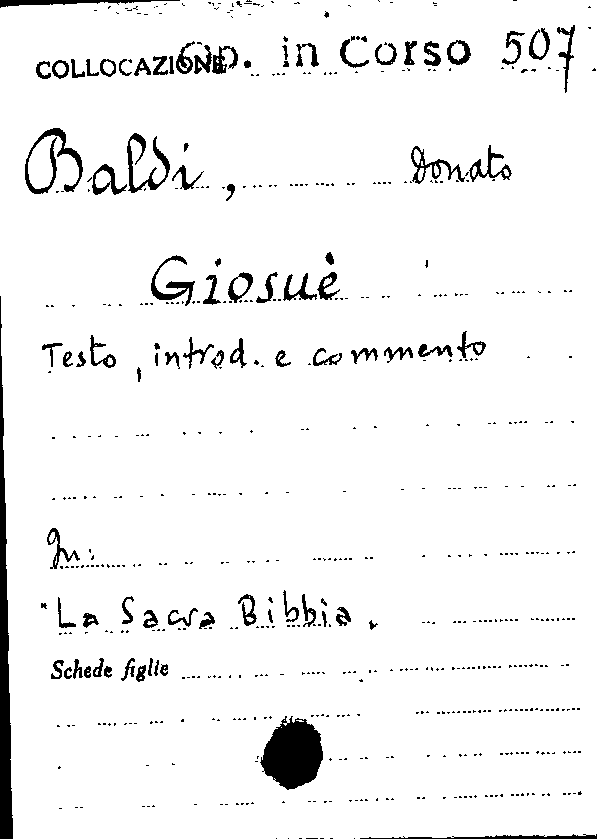 COLLOCAZIONE Op. in Corso 507
Baldi, Donato
Giosuè
Testo, introd. e commento
In:
"La Sacra Bibbia.
Schede figlie